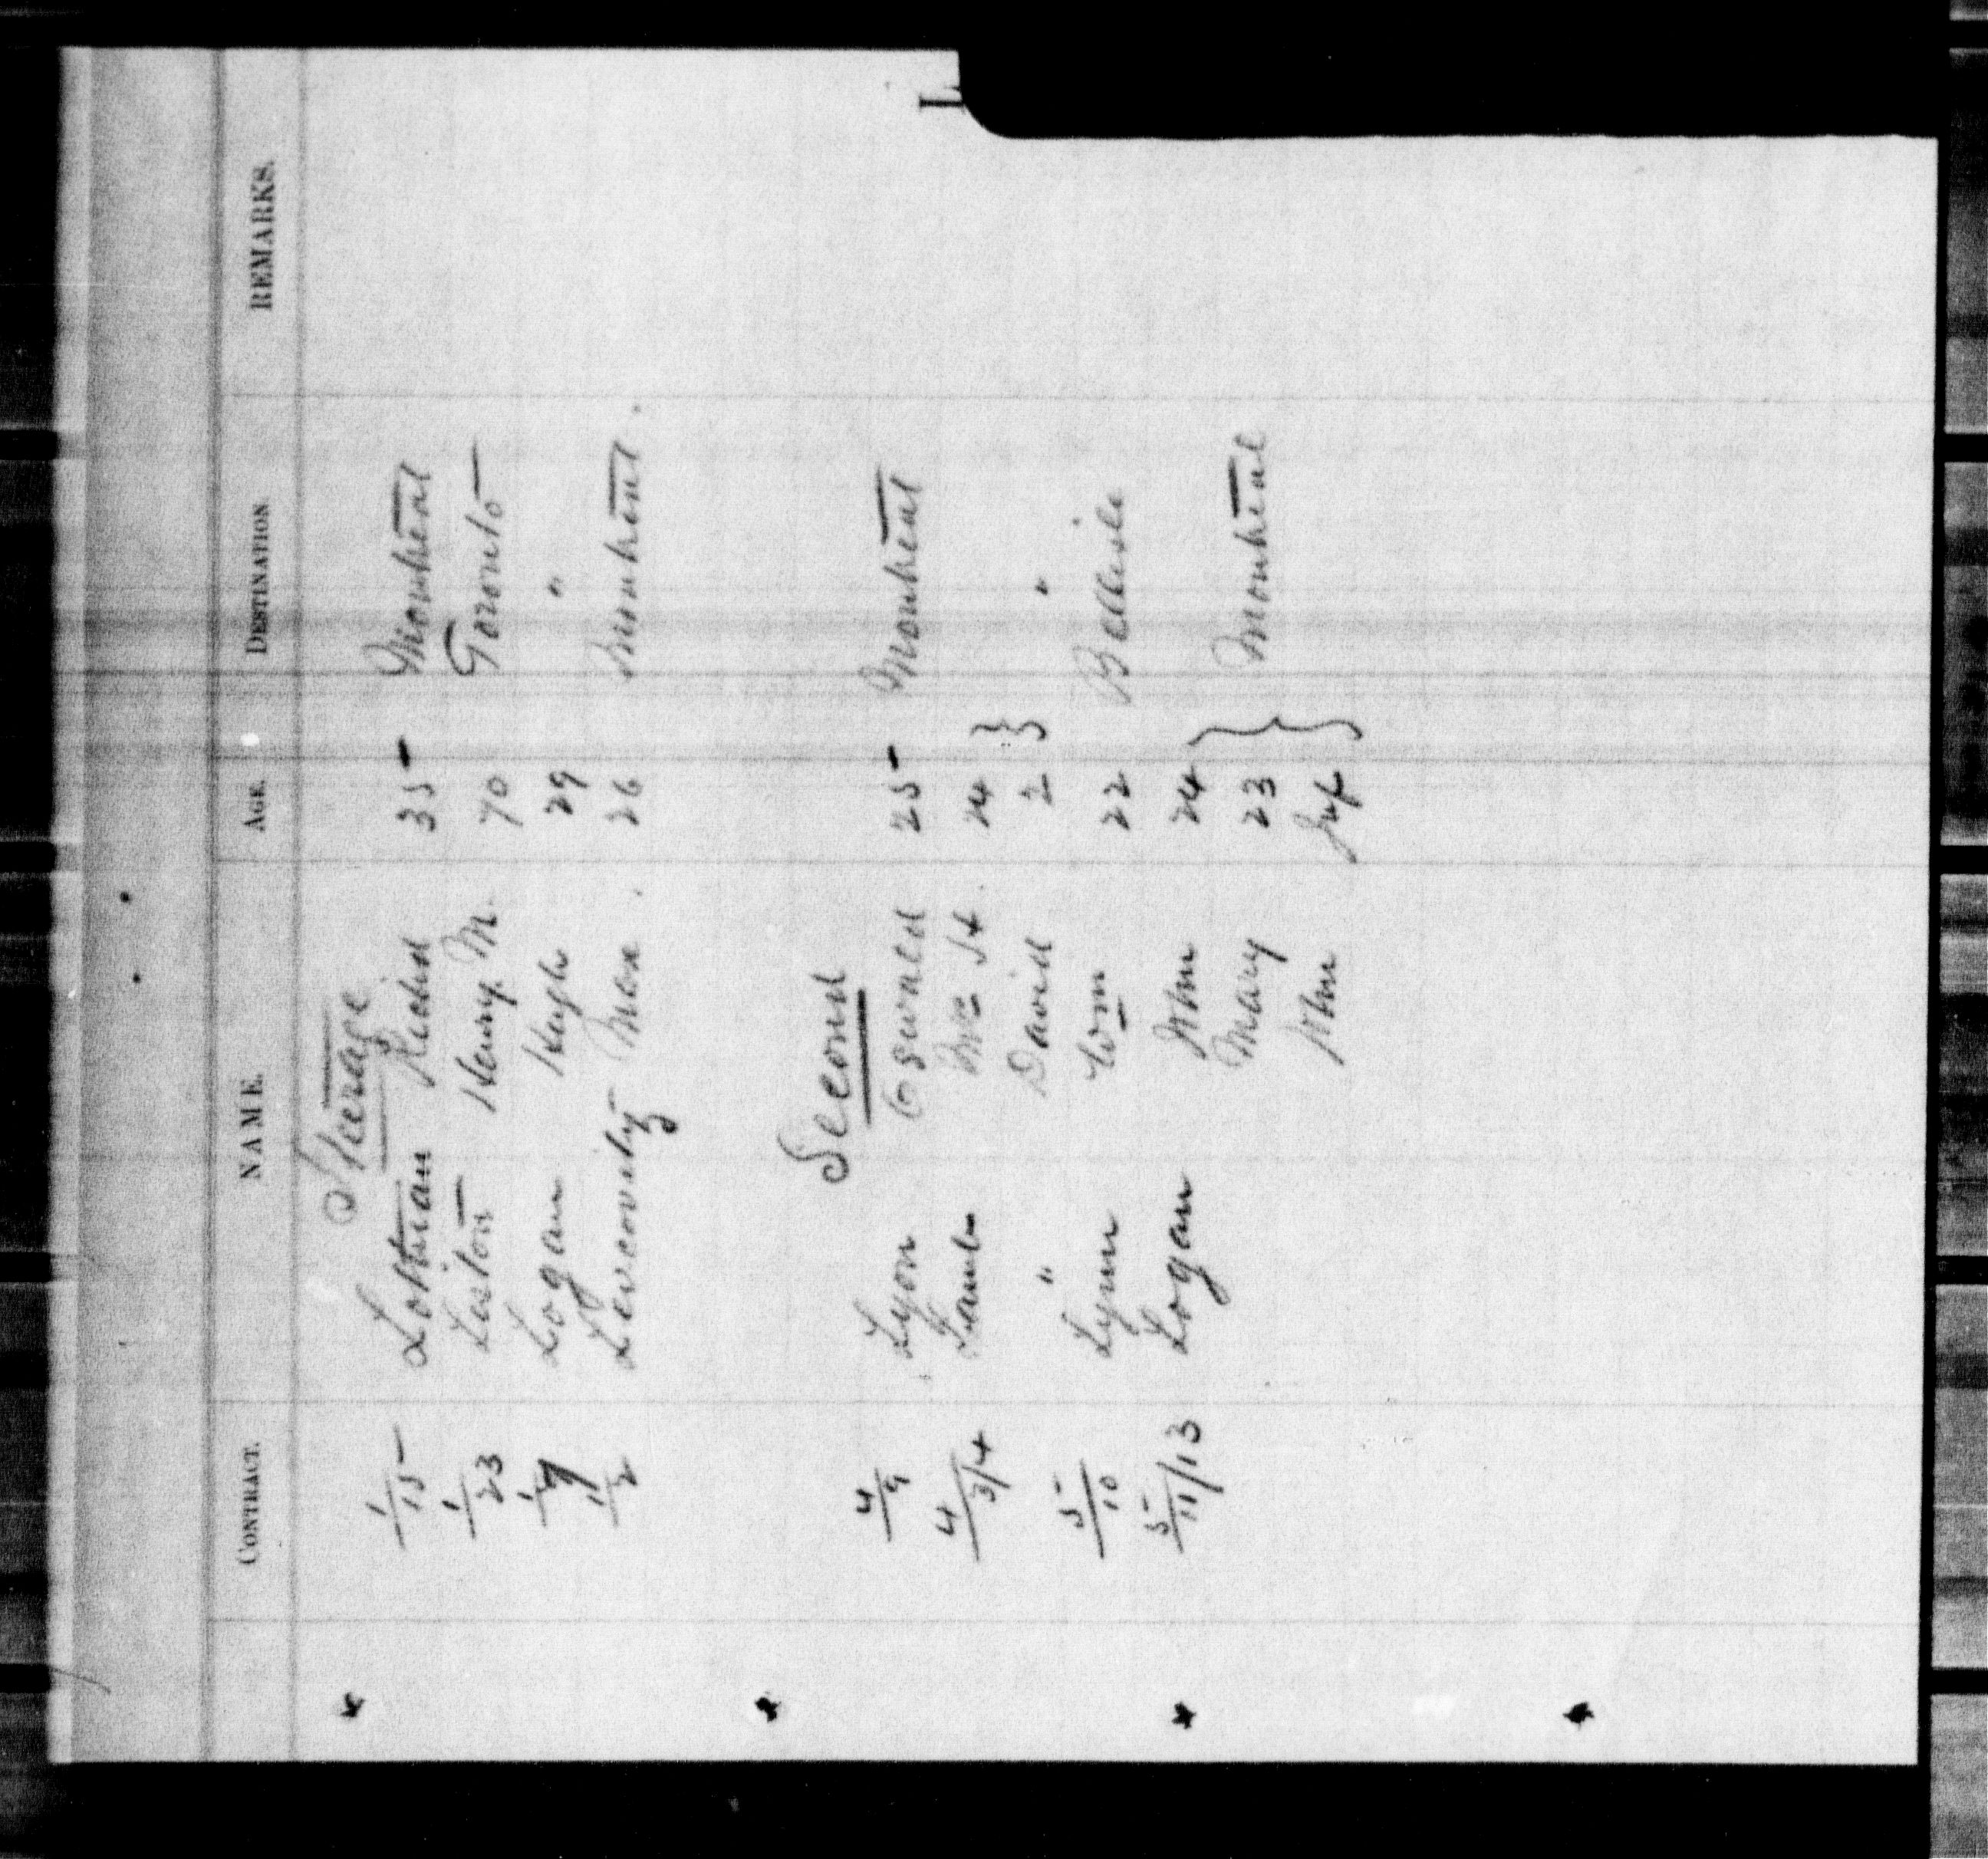 L
CONTRACT. NAME. AGE. DESTINATION REMARKS.
Steerage
1/15 Lothian Richd 35 Montreal
1/23 Leston Henry M. 70 Toronto
Logan Hugh 29 "
1/2 Levcovitz Max 26 Montreal.
Second
4/9 Lyon Oswald 25 Montreal
4/3/4 Lamb Mrs H. 24
" David 2 "
5/10 Lynn Wm 22 Belleisle
5/11/13 Logan Wm 24
Mary 23 Montreal
Wm Inf